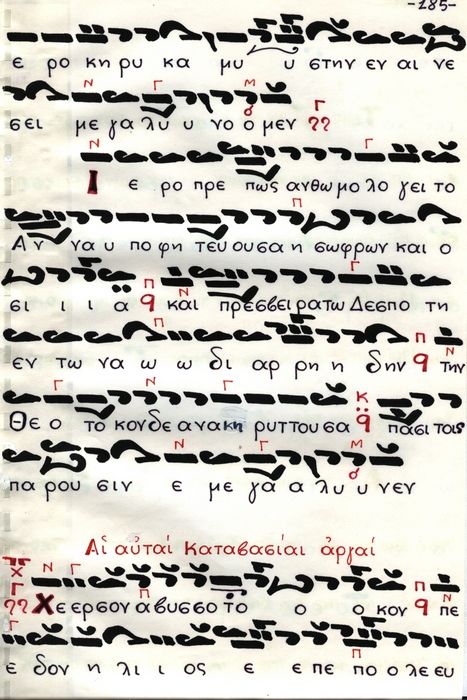 -185-
ε ρο κη ρυ κα μυ υ στην εν αι νε
Ν Γ Μ
σει με γα λυ υ νο ο μεν Γ
Ν Γ
Ι ε ρο πρε πως ανθω μο λο γει το
Π
Αν να υ πο φη τευ ου σα η σωφρων και ο
Π Ν Γ
σι ι ι α q και πρεσβει ρα τω Δεσπο τη
Π Π Ν
εν τω να ω ω δι αρ ρη η δην q την
Γ Ν Γ Κ
Θε ο το κον δε ανακη ρυττουσα q πασι τοις
Ν Γ Μ
πα ρου σιν ε με γα α λυ υ νεν
Αἱ αὐταί Καταβασίαι ἀργαί
Χ Ν Γ Π
Γ Χε ερσον αβυσσο το ο ο κον q πε
Π
ε δον η λι ι ος ε ε πε πο ο λευ